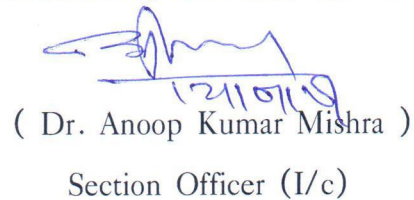 ( Dr. Anoop Kumar Mishra )
Section Officer (I/c)